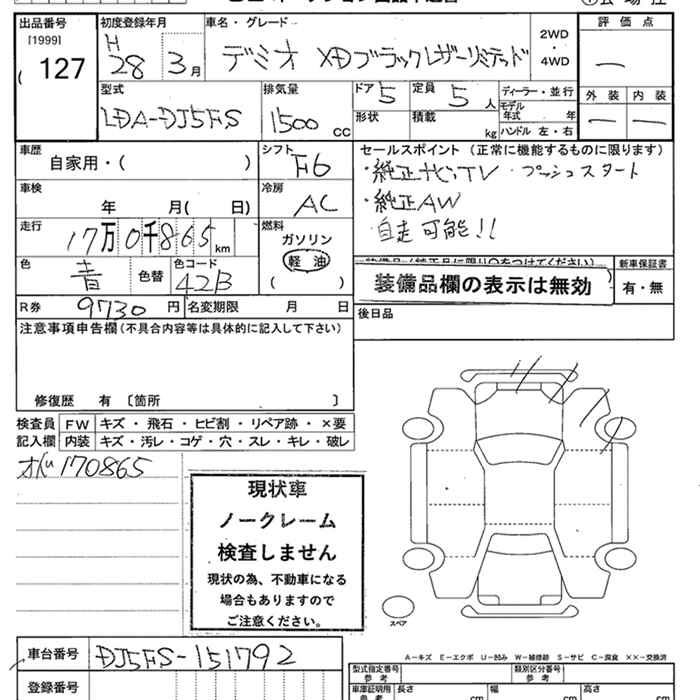 出品番号 初度登録年月 車名・グレード 評価点
[1999]
127
H28 3月
デミオ XDブラックレザーリミテッド
2WD
・
4WD
―
型式 排気量 ドア 定員 ディーラー・並行 外装 内装
LDA-DJ5FS 1500cc 5 5人
形状 積載 kg
モデル年式 年
ハンドル 左・右
― ―
車歴 自家用・( )
シフト F6
セールスポイント (正常に機能するものに限ります)
・純正ナビ,TV ・プッシュスタート
・純正AW
・自走可能!!
車検 年 月( 日)
冷房 AC
走行 17万0千865km
燃料 ガソリン
軽油
( )
色 青 色替 色コード 42B
装備品欄の表示は無効
新車保証書
有・無
R券 9730円 名変期限 月 日
後日品
注意事項申告欄(不具合内容等は具体的に記入して下さい)
修復歴 有 〔箇所 〕
検査員記入欄
FW キズ・飛石・ヒビ割・リペア跡・×要
内装 キズ・汚レ・コゲ・穴・スレ・キレ・破レ
170865
現状車
ノークレーム
検査しません
現状の為、不動車になる
場合もありますので
ご注意ください。
スペア
A-キズ E-エクボ U-凹み W-補修跡 S-サビ C-腐食 ××-交換済
車台番号 DJ5FS-151792
登録番号
型式指定番号 参考 類別区分番号 参考
車庫証明用 参考 長さ cm 幅 cm 高さ cm